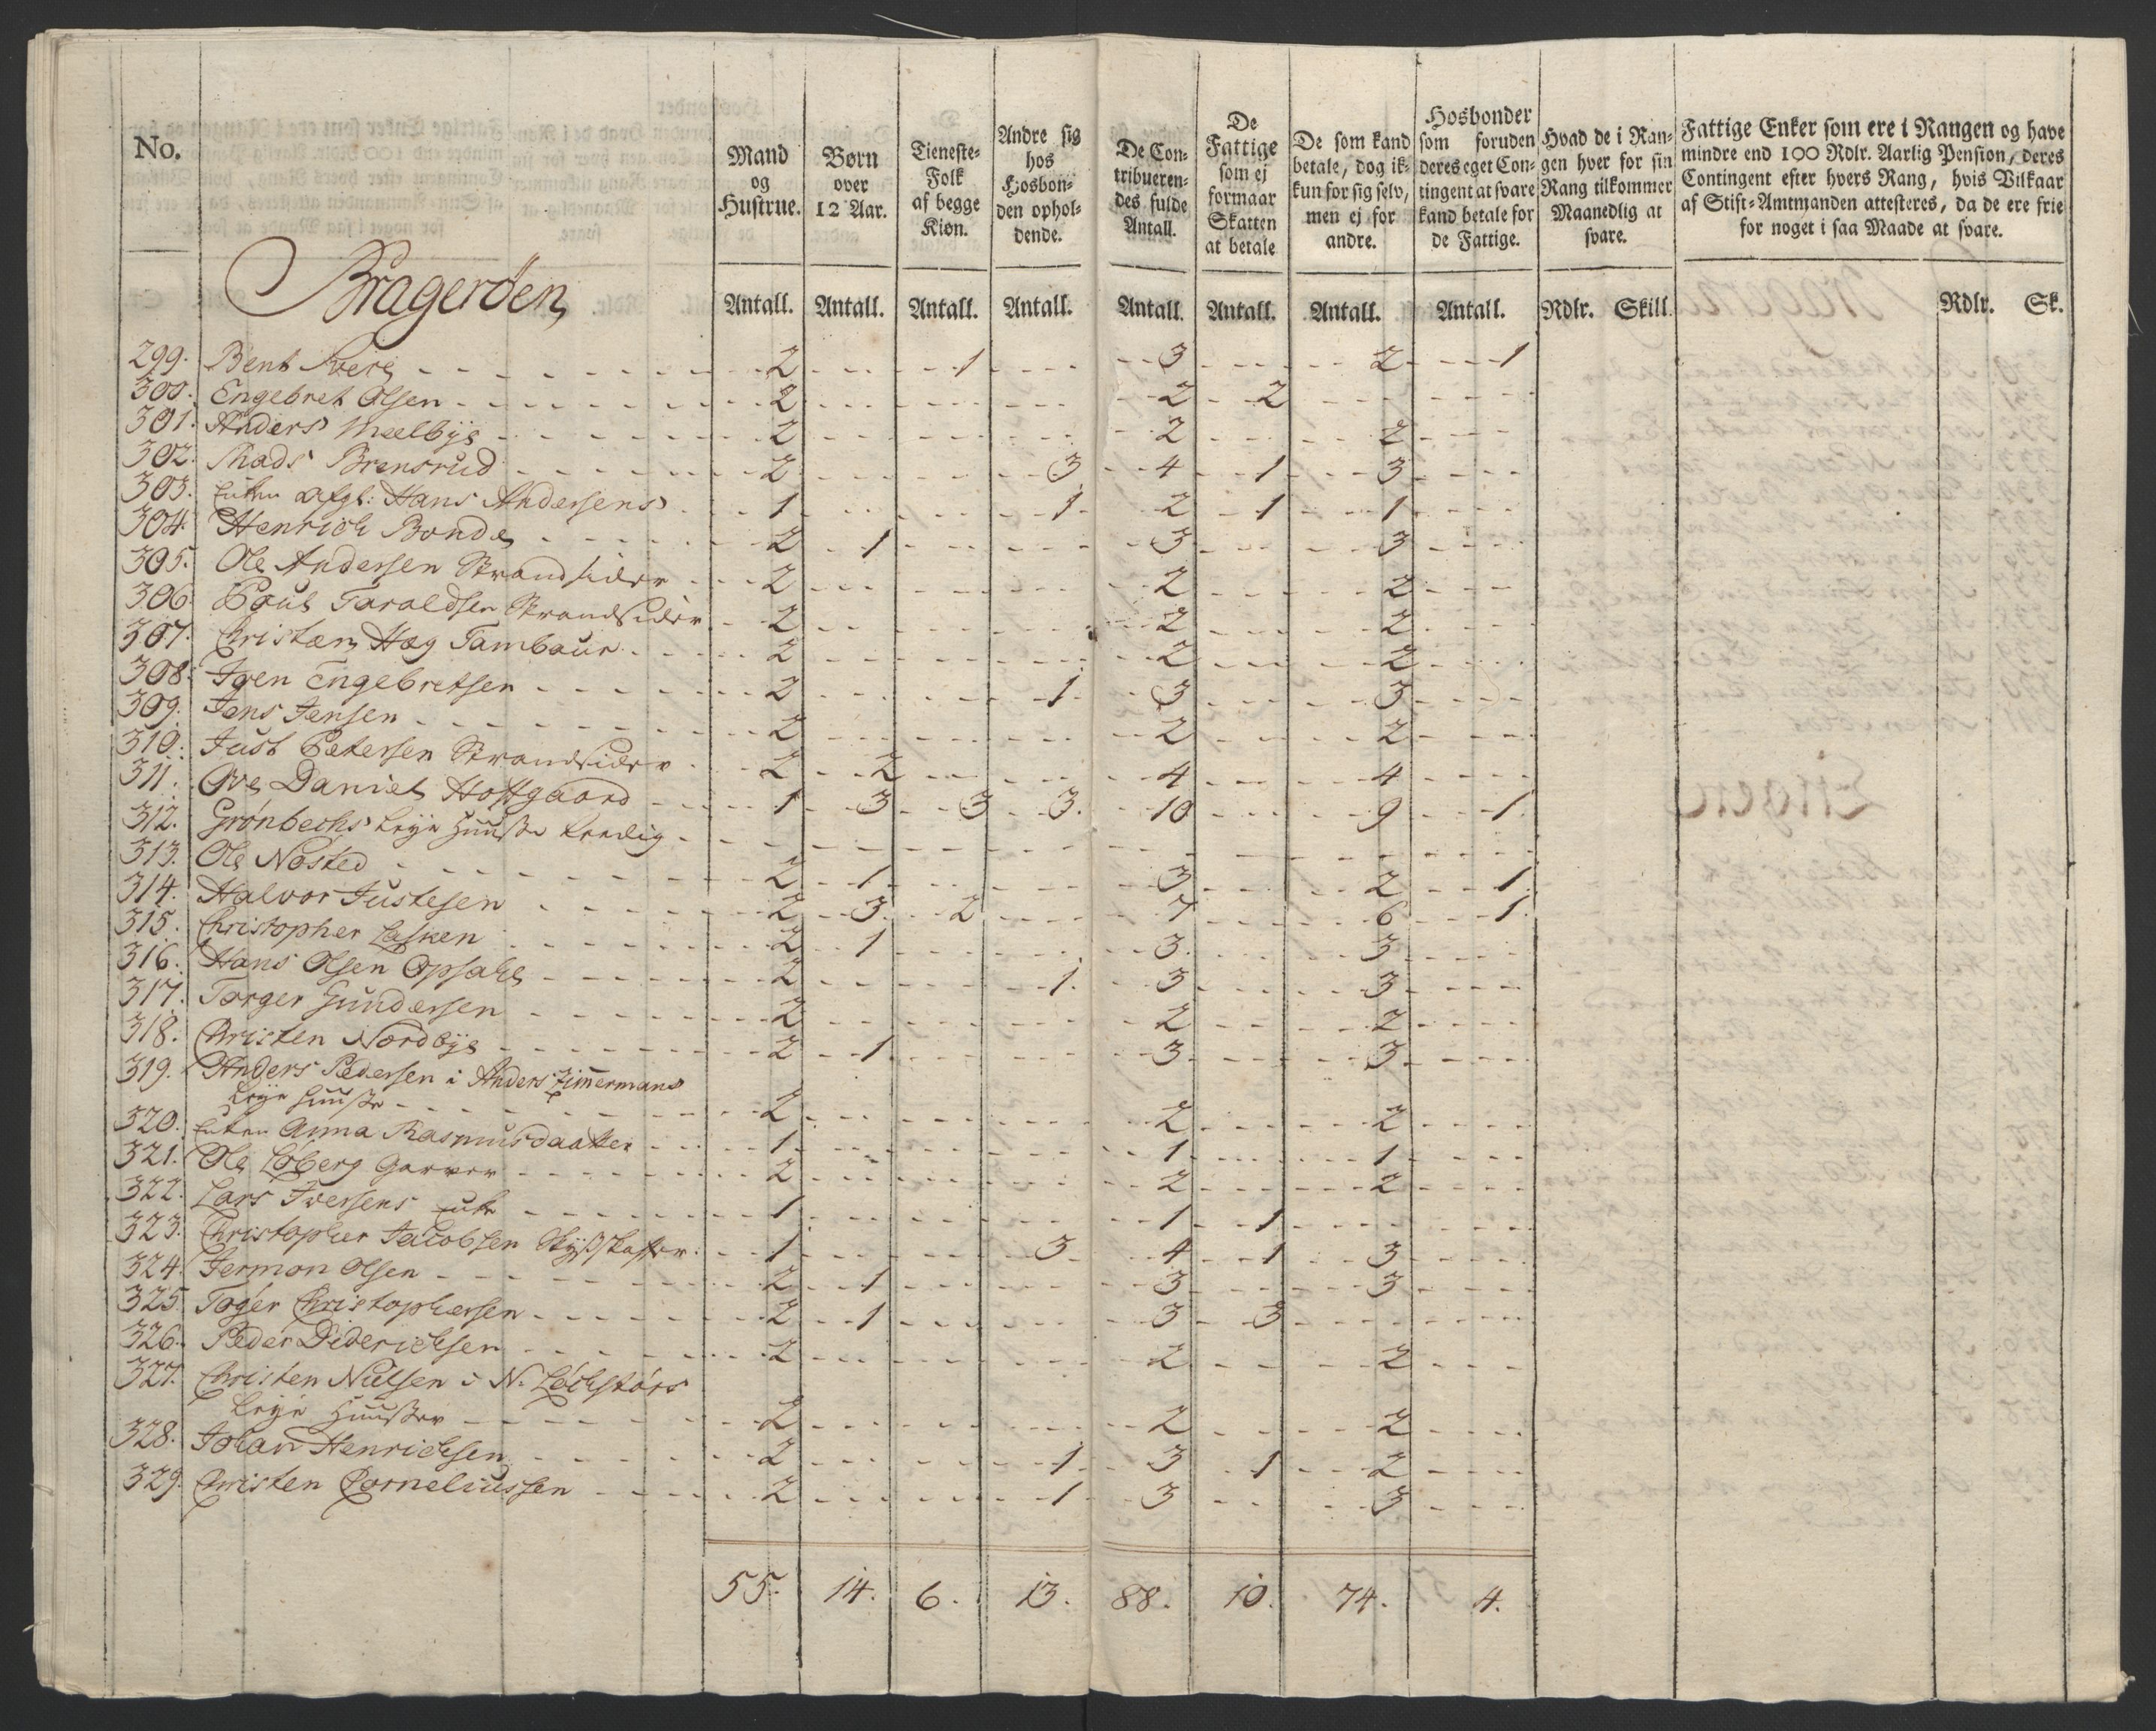 No. | | Mand og Hustrue. | Børn over 12 Aar. | Tieneste-Folk af begge Kiøn. | Andre sig hos Hosbonden opholdende. | De Contribuerendes fulde Antall. | De Fattige som ej formaar Skatten at betale | De som kand betale, dog ikkun for sig selv, men ej for andre. | Hosbonder som foruden deres eget Contingent at svare kand betale for de Fattige. | Hvad de i Rangen hver for sin Rang tilkommer Maanedlig at svare. | Fattige Enker som ere i Rangen og have mindre end 100 Rdlr. Aarlig Pension, deres Contingent efter hvers Rang, hvis Vilkaar af Stift-Amtmanden attesteres, da de ere frie for noget i saa Maade at svare.
Bragerøen | Antall. | Antall. | Antall. | Antall. | Antall. | Antall. | Antall. | Antall. | Rdlr. Skill. | Rdlr. Sk.
299. Bent | 2 | | 1 | | 3 | | 2 | 1
300. Engebret Olsen | 2 | | | | 2 | 2
301. Anders Meelbye | 2 | | | | 2 | | 2
302. Mads Brensrud | 2 | | | 3 | 4 | 1 | 3
303. Enken afgl: Hans Andersens | 1 | | | 1 | 2 | 1 | 1
304. Henrich Bonde | 2 | 1 | | | 3 | | 3
305. Ole Andersen Strandsider | 2 | | | | 2 | | 2
306. Poul Taraldsen Strandsider | 2 | | | | 2 | | 2
307. Christen Hæg Tambour | 2 | | | | 2 | | 2
308. Iven Engebretsen | 2 | | | 1 | 3 | | 3
309. Jens Jensen | 2 | | | | 2 | | 2
310. Just Petersen Strandsider | 2 | 2 | | | 4 | | 4
311. Ove Daniel Hofgaard | 1 | 3 | 3 | 3. | 10 | | 9 | 1.
312. Grønbechs Leye Huuse Leedig
313. Ole Nøsted | 2 | 1 | | | 3 | | 2 | 1.
314. Halvor Justesen | 2 | 3. | 2 | | 7 | | 6 | 1.
315. Christopher Lasken | 2 | 1 | | | 3. | | 3
316. Hans Olsen Opsahl | 2 | | | 1. | 3 | | 3
317. Torger Gundersen | 2 | | | | 2 | | 2
318. Christen Nordbye | 2 | 1 | | | 3 | | 3
319. Anders Pedersen i Anders Zim̄ermans
Leye Huuse | 2 | | | | 2 | | 2
320. Enken Anna Rasmusdaatter | 1 | | | | 1 | | 1
321. Ole Løberg Garver | 2 | | | | 2 | | 2
322. Lars Iversens Enke | 1 | | | | 1 | 1
323. Christopher Jacobsen | 1 | | | 3 | 4 | 1 | 3
324. Jermon Olsen | 2 | 1 | | | 3 | | 3
325. Toger Christophersen | 2 | 1 | | | 3 | 3
326. Peder Diderichsen | 2 | | | | 2 | | 2
327. Christen Nielsen i N. Løchstørs
Leye Huuser | 2 | | | | 2 | | 2
328. Johan Henrichsen | 2 | | | 1 | 3 | 1 | 2
329. Christen Corneliussen | 2 | | | 1 | 3 | | 3
55. | 14. | 6. | 13. | 88. | 10. | 74. | 4.